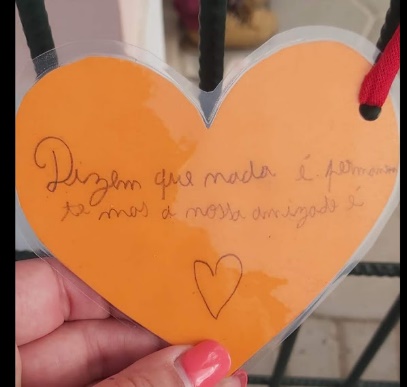 Dizem que nada é permanen
te mas a nossa amizade é